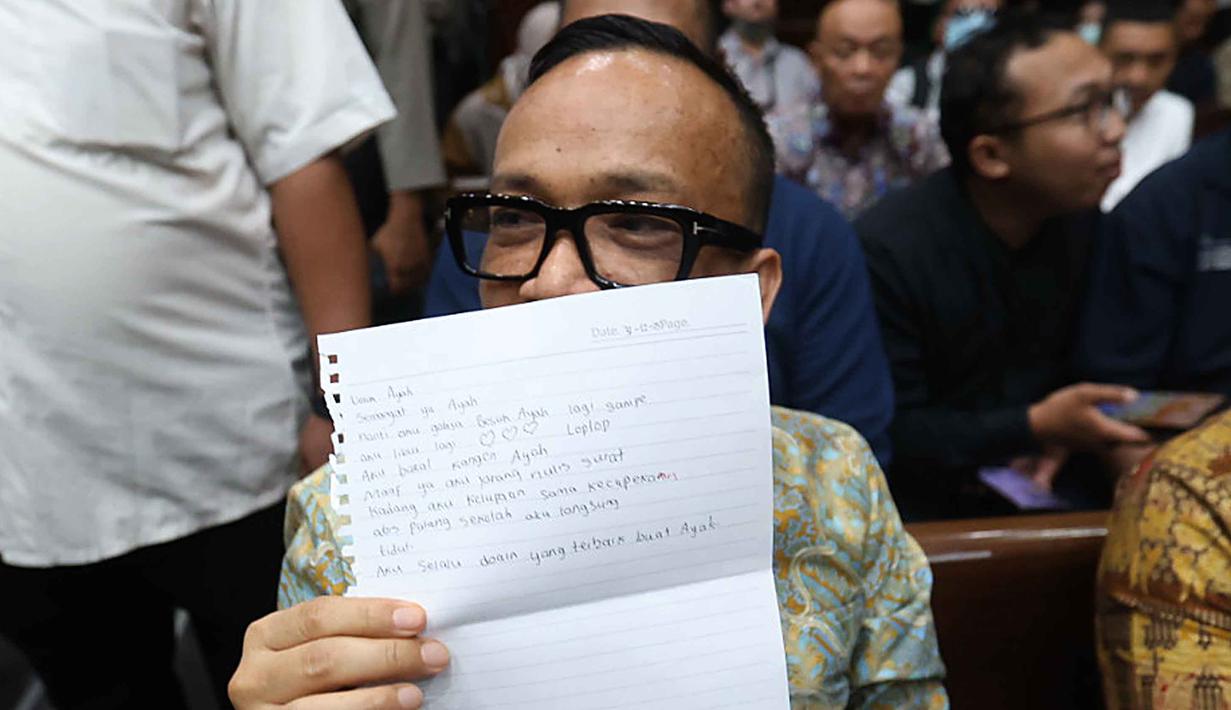 Date: 31-12-25 Page:
Untuk Ayah
Semangat ya Ayah
nanti aku gabisa Besuk Ayah lagi sampe
aku libur lagi ♡♡♡ Loplop
Aku bakal kangen Ayah
Maaf ya aku jarang nulis surat
Kadang aku kelupaan sama kecapekan
abs pulang sekolah aku langsung
tidur.
Aku selalu doain yang terbaik buat Ayah